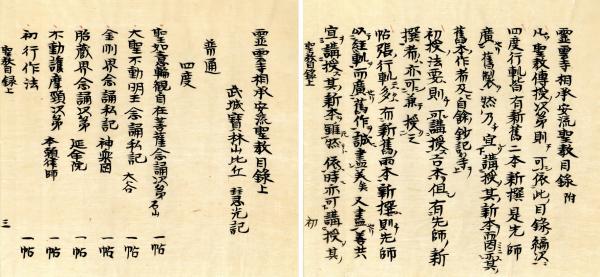 靈雲寺相承安流聖教目録 附
凡聖教傳授次第則可依此目録編次
四度行軌皆有新舊二本新撰是先師
廣舊製然乃宜講授其新本而其
舊本作者及目録鈔記等
初授法要則可講授古本但有先師新
撰者亦可兼授之
帖張行軌多而新舊兩本新撰則先師
以經軌而廣舊作誠盡美矣又盡善
宜講授其新本雖然依時亦可講授其
聖教目録上 初
靈雲寺相承安流聖教目録上
武城寶林山比丘 慧光記
普通
四度
聖如意輪觀自在菩薩念誦次第 石山 一帖
大聖不動明王念誦私記 一帖
金剛界念誦私記 神樂岡 一帖
胎藏界念誦次第 延命院 一帖
不動護摩次第 律師 一帖
初行作法 一帖
聖教目録上 三